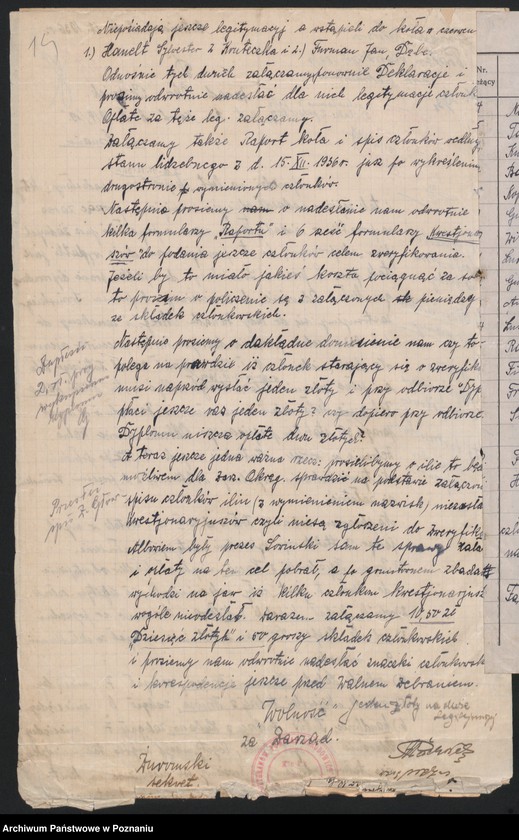 Nieposiadają jeszcze legitymacyj a wstąpili do koła w czerwcu
1.) Handt Sylwester z Kruteczka i 2.) Furman Jan Dębe.
Odnośnie tych dwóch załączamy ponownie Deklaracje i
prosimy odwrotnie nadesłać dla nich legitymacje członk
Opłatę za też leg. załączamy.
Załączamy także Raport koła i spis członków według
stanu liczebnego z d. 15. XII. 1936 r. już po wykreśleniu
drugostronie wymienionych członków.
Następnie prosimy o nadesłanie nam odwrotnie
kilka formularzy "Raportu" i 6 sześć formularzy Kwestjonarju
szów do podania jeszcze członków celem zweryfikowania.
Jeżeli by to miało jakieś koszta pociągnąć za sobą
to prosimy o policzenie się z załączonych pieniędzy
ze składek członkowskich.
Następnie prosimy o dokładne doniesienie nam czy to
polega na prawdzie iż członek starający się o zweryfik
musi naprzód wysłać jeden złoty i przy odbiorze Dyp
płaci jeszcze raz jeden złoty? czy dopiero przy odbiorze
Dyplomu uiszcza opłatę dwu złotych?
A teraz jeszcze jedna ważna rzecz: prosilibyśmy o ilie to być
możliwem dla Zarz. Okręg. sprawdzić na podstawie załączon
spisu członków ilu (z wymienieniem nazwisk) niezosta
kwestjonarjuszów czyli niesą zgłoszeni do zweryfika
Albowiem były prezes sam te sprawy zała
i opłaty na ten cel pobrał, a po gruntownem zbadan
wychodzi na jaw iż kilku członków kwestjonarjusz
wogóle nieodesłał. Zarazem załączamy 10,50 zł
"Dziesięć złotych" i 50 groszy składek członkowskich
i prosimy nam odwrotnie nadesłać znaczki członkowsk
i korespondencje jeszcze przed Walnem Zebraniem.
Wolność jeden złoty na dwie
legitymacje
za Zarząd.
Żuromski
sekret.
2 zł. przy
Archiwum Państwowe w Poznaniu
Nr.